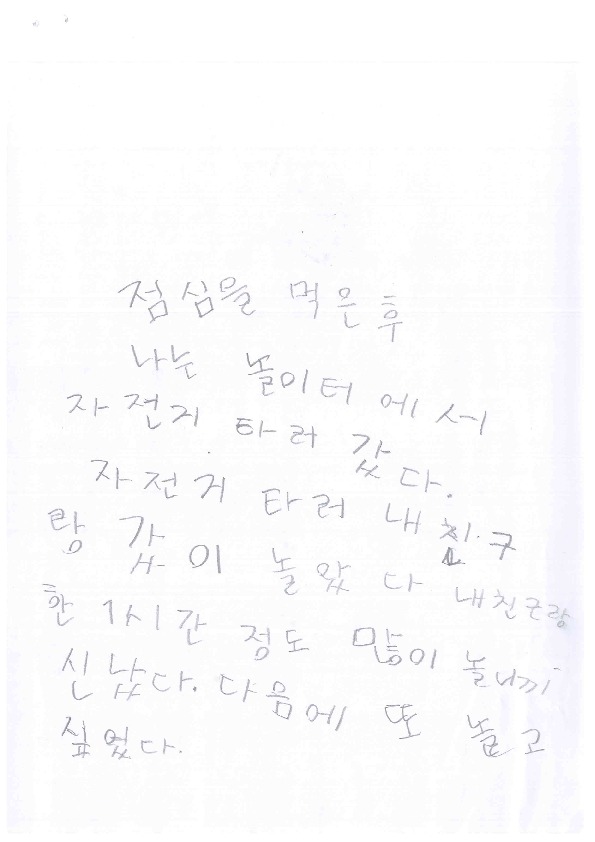 점심을 먹은후
나는 놀이터 에서
자전거 타러 갔다.
자전거 타러 내친구
랑 갔이 놀았다 내친구랑
한 1시간 정도 많이 놀니까
신났다. 다음에 또 놀고
싶었다.